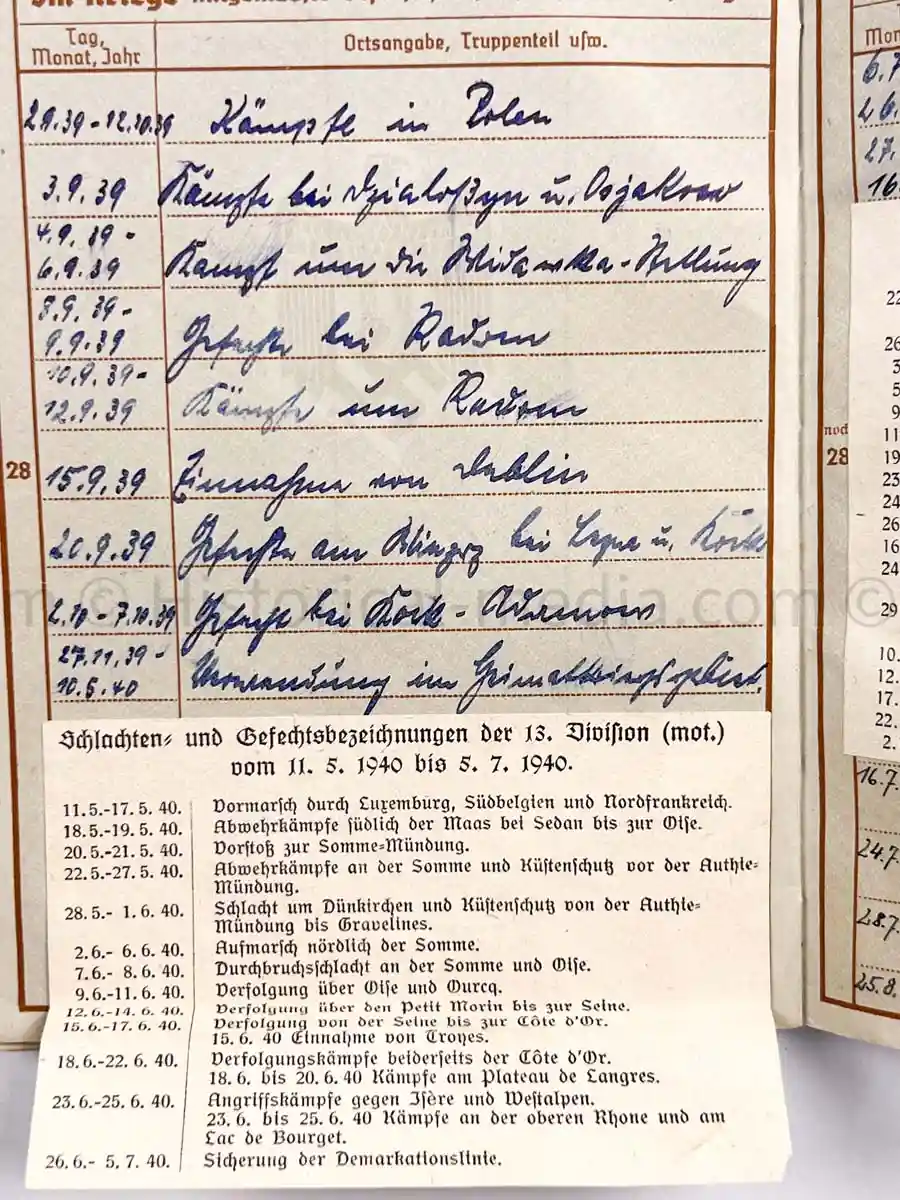 im Kriege
Tag,
Monat, Jahr
Ortsangabe, Truppenteil usw.
2.9.39 - 12.10.39 Kämpfe in Polen
3.9.39 Kämpfe bei Dzialoßyn u. Osjakow
4.9.39 -
6.9.39 Kampf um die Widawka-Stellung
8.9.39 -
9.9.39 Gefechte bei Radom
10.9.39 -
12.9.39 Kämpfe um Radom
28
15.9.39 Einnahme von Deblin
20.9.39 Gefechte am bei u. Kock
2.10 - 7.10.39 Gefecht bei Kock - Adamow
27.11.39 -
10.5.40 Verwendung im Heimatkriegsgebiet.
Schlachten- und Gefechtsbezeichnungen der 13. Division (mot.)
vom 11. 5. 1940 bis 5. 7. 1940.
11.5.-17.5. 40. Vormarsch durch Luxemburg, Südbelgien und Nordfrankreich.
18.5.-19.5. 40. Abwehrkämpfe südlich der Maas bei Sedan bis zur Oise.
20.5.-21.5. 40. Vorstoß zur Somme-Mündung.
22.5.-27.5. 40. Abwehrkämpfe an der Somme und Küstenschutz vor der Authie-
Mündung.
28.5.- 1.6. 40. Schlacht um Dünkirchen und Küstenschutz von der Authie-
Mündung bis Gravelines.
2.6.- 6.6. 40. Aufmarsch nördlich der Somme.
7.6.- 8.6. 40. Durchbruchsschlacht an der Somme und Oise.
9.6.-11.6. 40. Verfolgung über Oise und Ourcq.
12.6.-14.6. 40. Verfolgung über den Petit Morin bis zur Seine.
15.6.-17.6. 40. Verfolgung von der Seine bis zur Côte d'Or.
15. 6. 40 Einnahme von Troyes.
18.6.-22.6. 40. Verfolgungskämpfe beiderseits der Côte d'Or.
18.6. bis 20.6.40 Kämpfe am Plateau de Langres.
23.6.-25.6. 40. Angriffskämpfe gegen Isère und Westalpen.
23.6. bis 25.6.40 Kämpfe an der oberen Rhone und am
Lac de Bourget.
26.6.- 5.7. 40. Sicherung der Demarkationslinie.
noch
28
16.7.
24.7.
28.7.
25.8.
© Historica-media.com ©